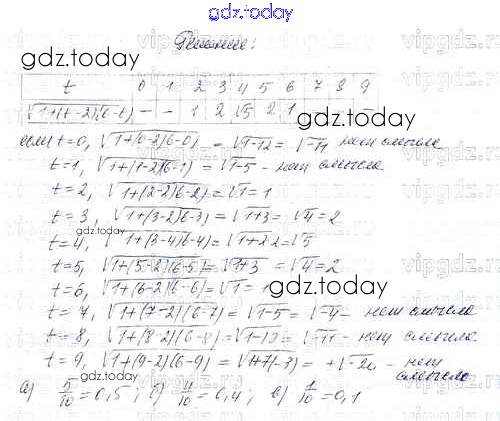 gdz.today
vipgdz.ru
Решение:
gdz.today
t 0 1 2 3 4 5 6 7 8 9
√1+(t-2)(6-t) - - 1 2 √5 2 1 - - -
если t=0, √1+(0-2)(6-0) = √1-12 = √-11 нет смысла
t=1, √1+(1-2)(6-1) = √1-5 - нет смысла
t=2, √1+(2-2)(6-2) = √1 = 1
t=3, √1+(3-2)(6-3) = √1+3 = √4 = 2
t=4, √1+(3-4)(6-4) = √1+2·2 = √5
t=5, √1+(5-2)(6-5) = √1+3 = √4 = 2
t=6, √1+(6-2)(6-6) = √1 = 1
gdz.today
t=7, √1+(7-2)(6-7) = √1-5 = √-4 - нет смысла
t=8, √1+(8-2)(6-8) = √1-12 = √-11 - нет смысла.
t=9, √1+(9-2)(6-9) = √1+7(-3) = +√-20 - нет смысла
gdz.today
а) 5/10 = 0,5; б) 4/10 = 0,4; в) 1/10 = 0,1
gdz.today